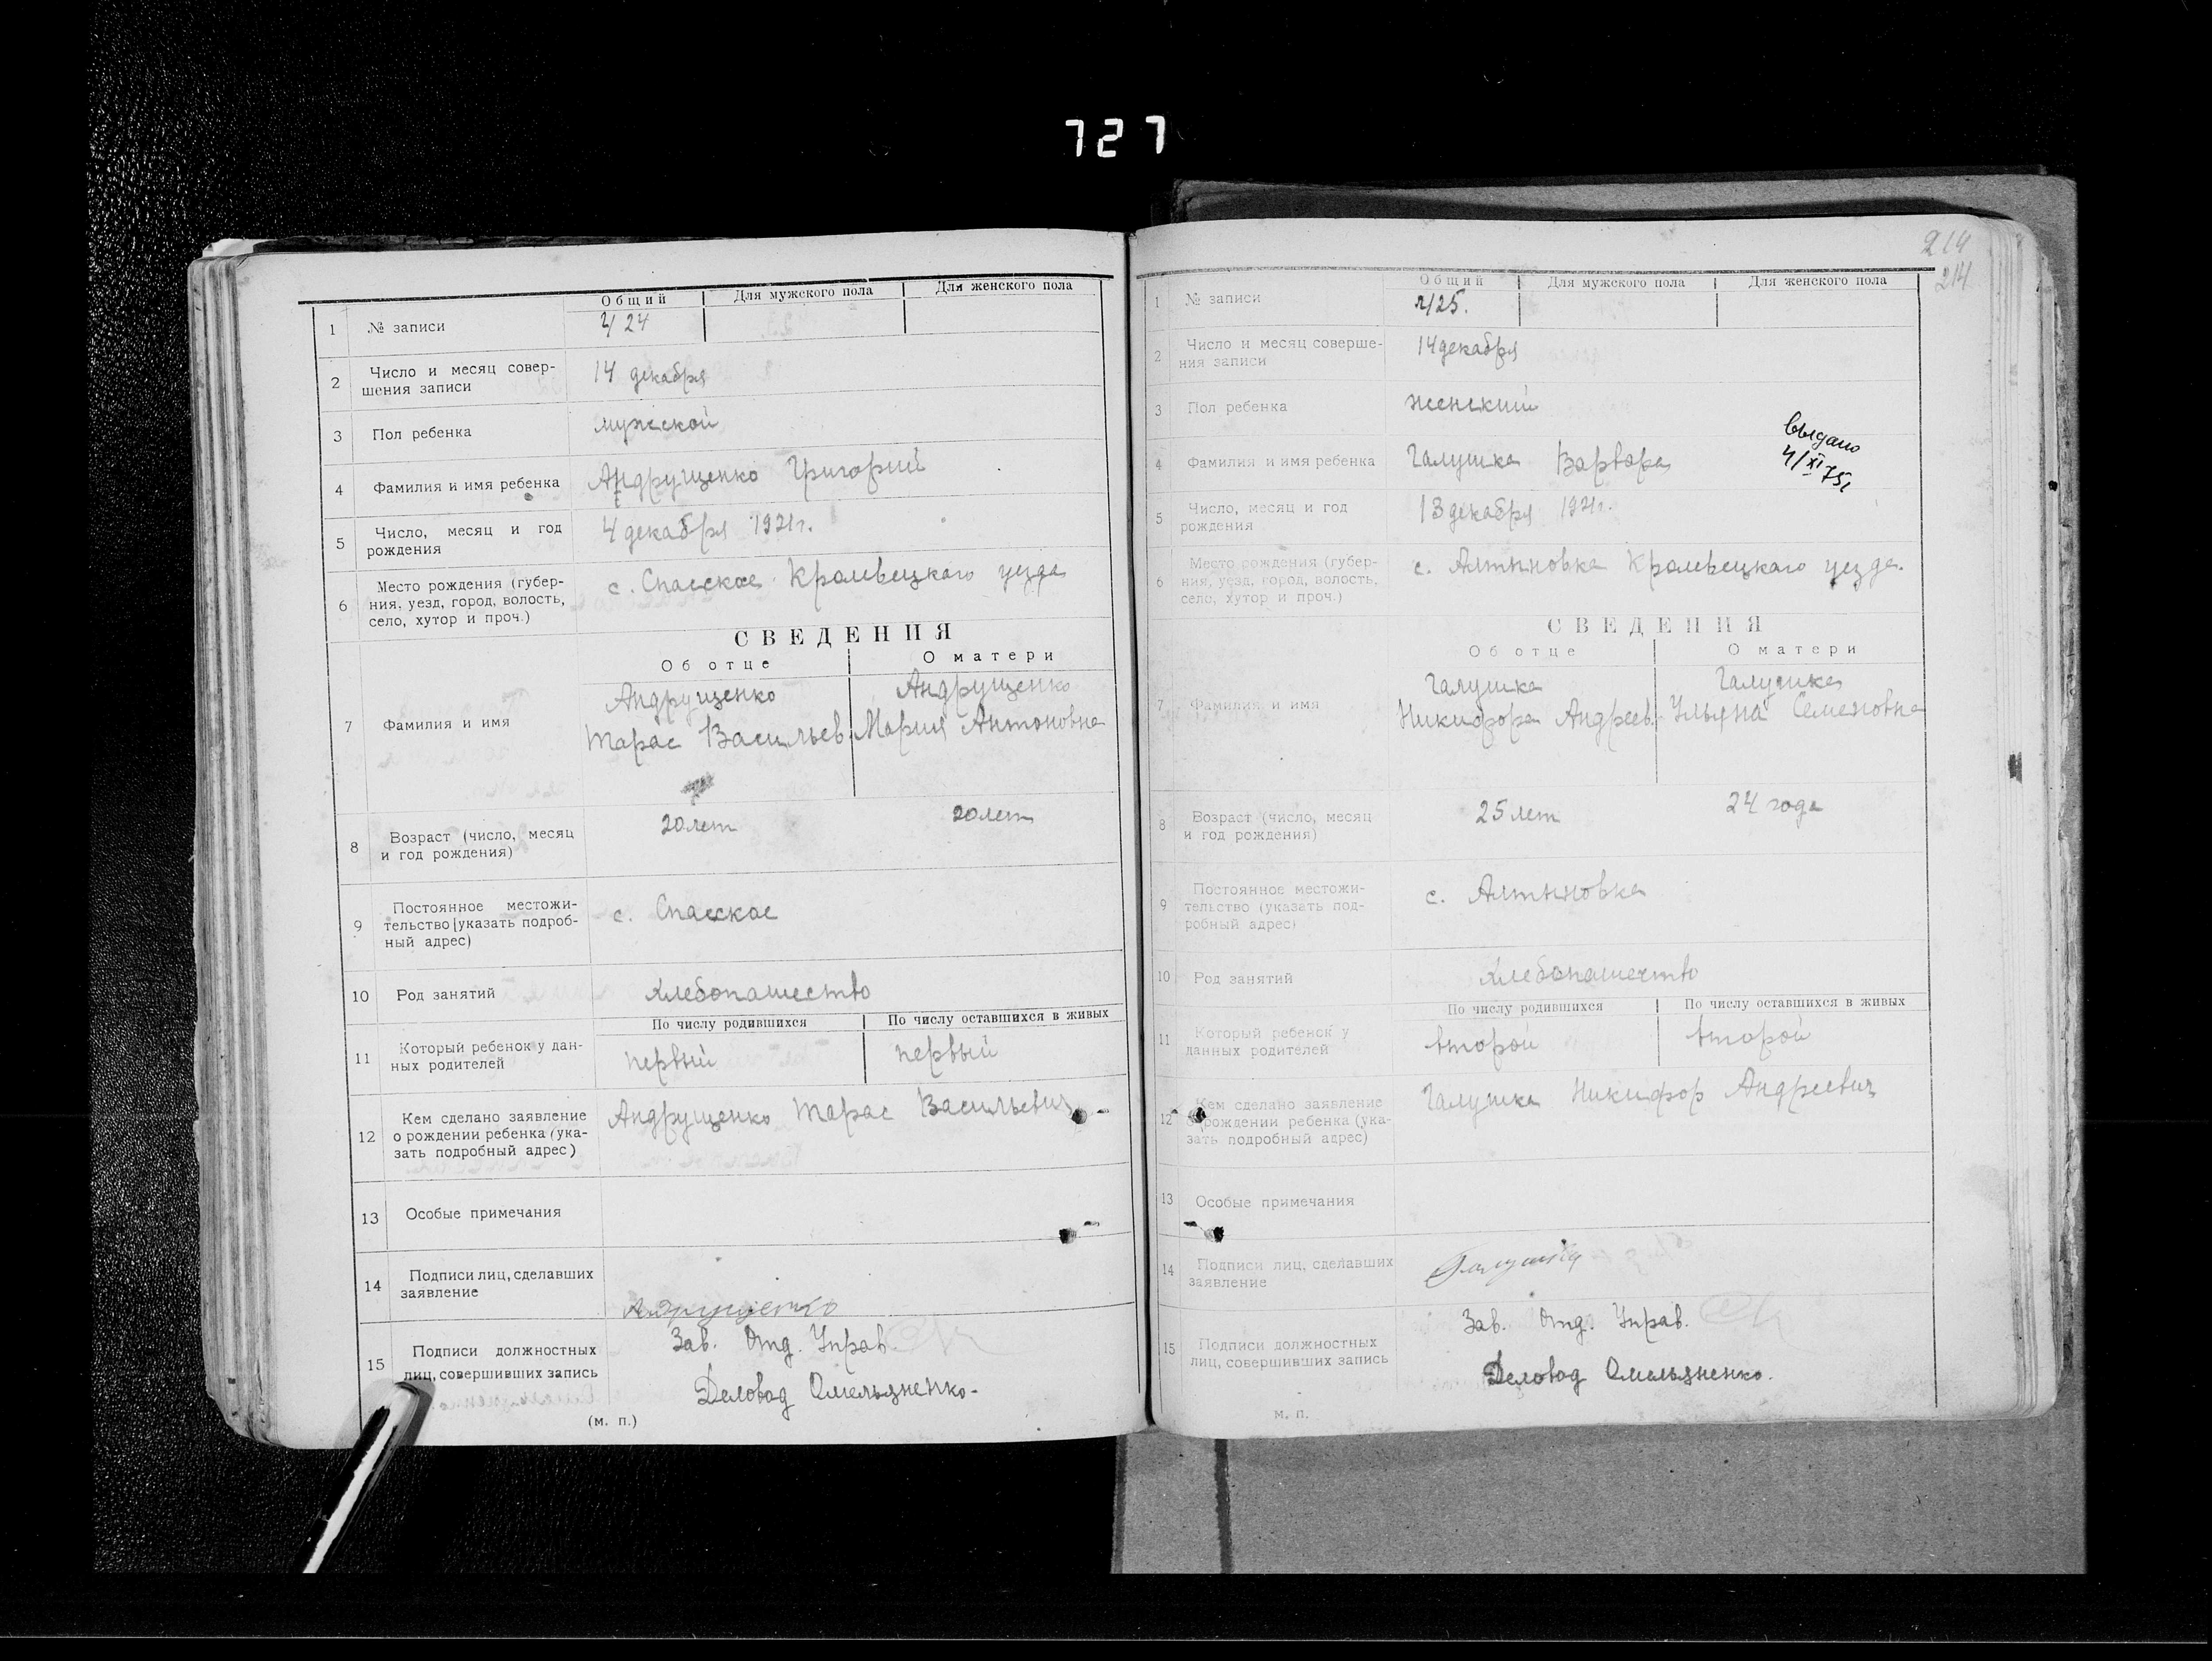 727
Общий Для мужского пола Для женского пола
1 № записи 424
2 Число и месяц совер-
шения записи 14 декабря
3 Пол ребенка мужской
4 Фамилия и имя ребенка Андрущенко Григорий
5 Число, месяц и год
рождения 4 декабря 1921 г.
6 Место рождения (губер-
ния, уезд, город, волость,
село, хутор и проч.) с. Спасское Кролевецкаго уезда
СВЕДЕНИЯ
Об отце О матери
7 Фамилия и имя Андрущенко Андрущенко
Тарас Васильев. Мария Антоновна
8 Возраст (число, месяц
и год рождения) 20 лет 20 лет
9 Постоянное местожи-
тельство (указать подроб-
ный адрес) с. Спасское
10 Род занятий Хлебопашество
По числу родившихся По числу оставшихся в живых
11 Который ребенок у дан-
ных родителей первый первый
12 Кем сделано заявление
о рождении ребенка (ука-
зать подробный адрес) Андрущенко Тарас Васильевич
13 Особые примечания
14 Подписи лиц, сделавших
заявление Андрущенко
15 Подписи должностных
лиц, совершивших запись Зав. Отд. Управ.
Деловод Омельяненко.
(м. п.)
214
214
Общий Для мужского пола Для женского пола
1 № записи 425.
2 Число и месяц соверше-
ния записи 14 декабря
3 Пол ребенка женский
4 Фамилия и имя ребенка Галушка Варвара
выдано
4/XI 75г
5 Число, месяц и год
рождения 13 декабря 1921 г.
6 Место рождения (губер-
ния, уезд, город, волость,
село, хутор и проч.) с. Алтыновка Кролевецкаго уезда.
СВЕДЕНИЯ
Об отце О матери
7 Фамилия и имя Галушка Галушка
Никифора Андреев. Ульяна Семеновна
8 Возраст (число, месяц
и год рождения) 25 лет 24 года
9 Постоянное местожи-
тельство (указать под-
робный адрес) с. Алтыновка
10 Род занятий Хлебопашество
По числу родившихся По числу оставшихся в живых
11 Который ребенок у
данных родителей второй второй
12 Кем сделано заявление
о рождении ребенка (ука-
зать подробный адрес) Галушка Никифор Андреевич
13 Особые примечания
14 Подписи лиц, сделавших
заявление Галушка
15 Подписи должностных
лиц, совершивших запись Зав. Отд. Управ.
Деловод Омельяненко.
м. п.